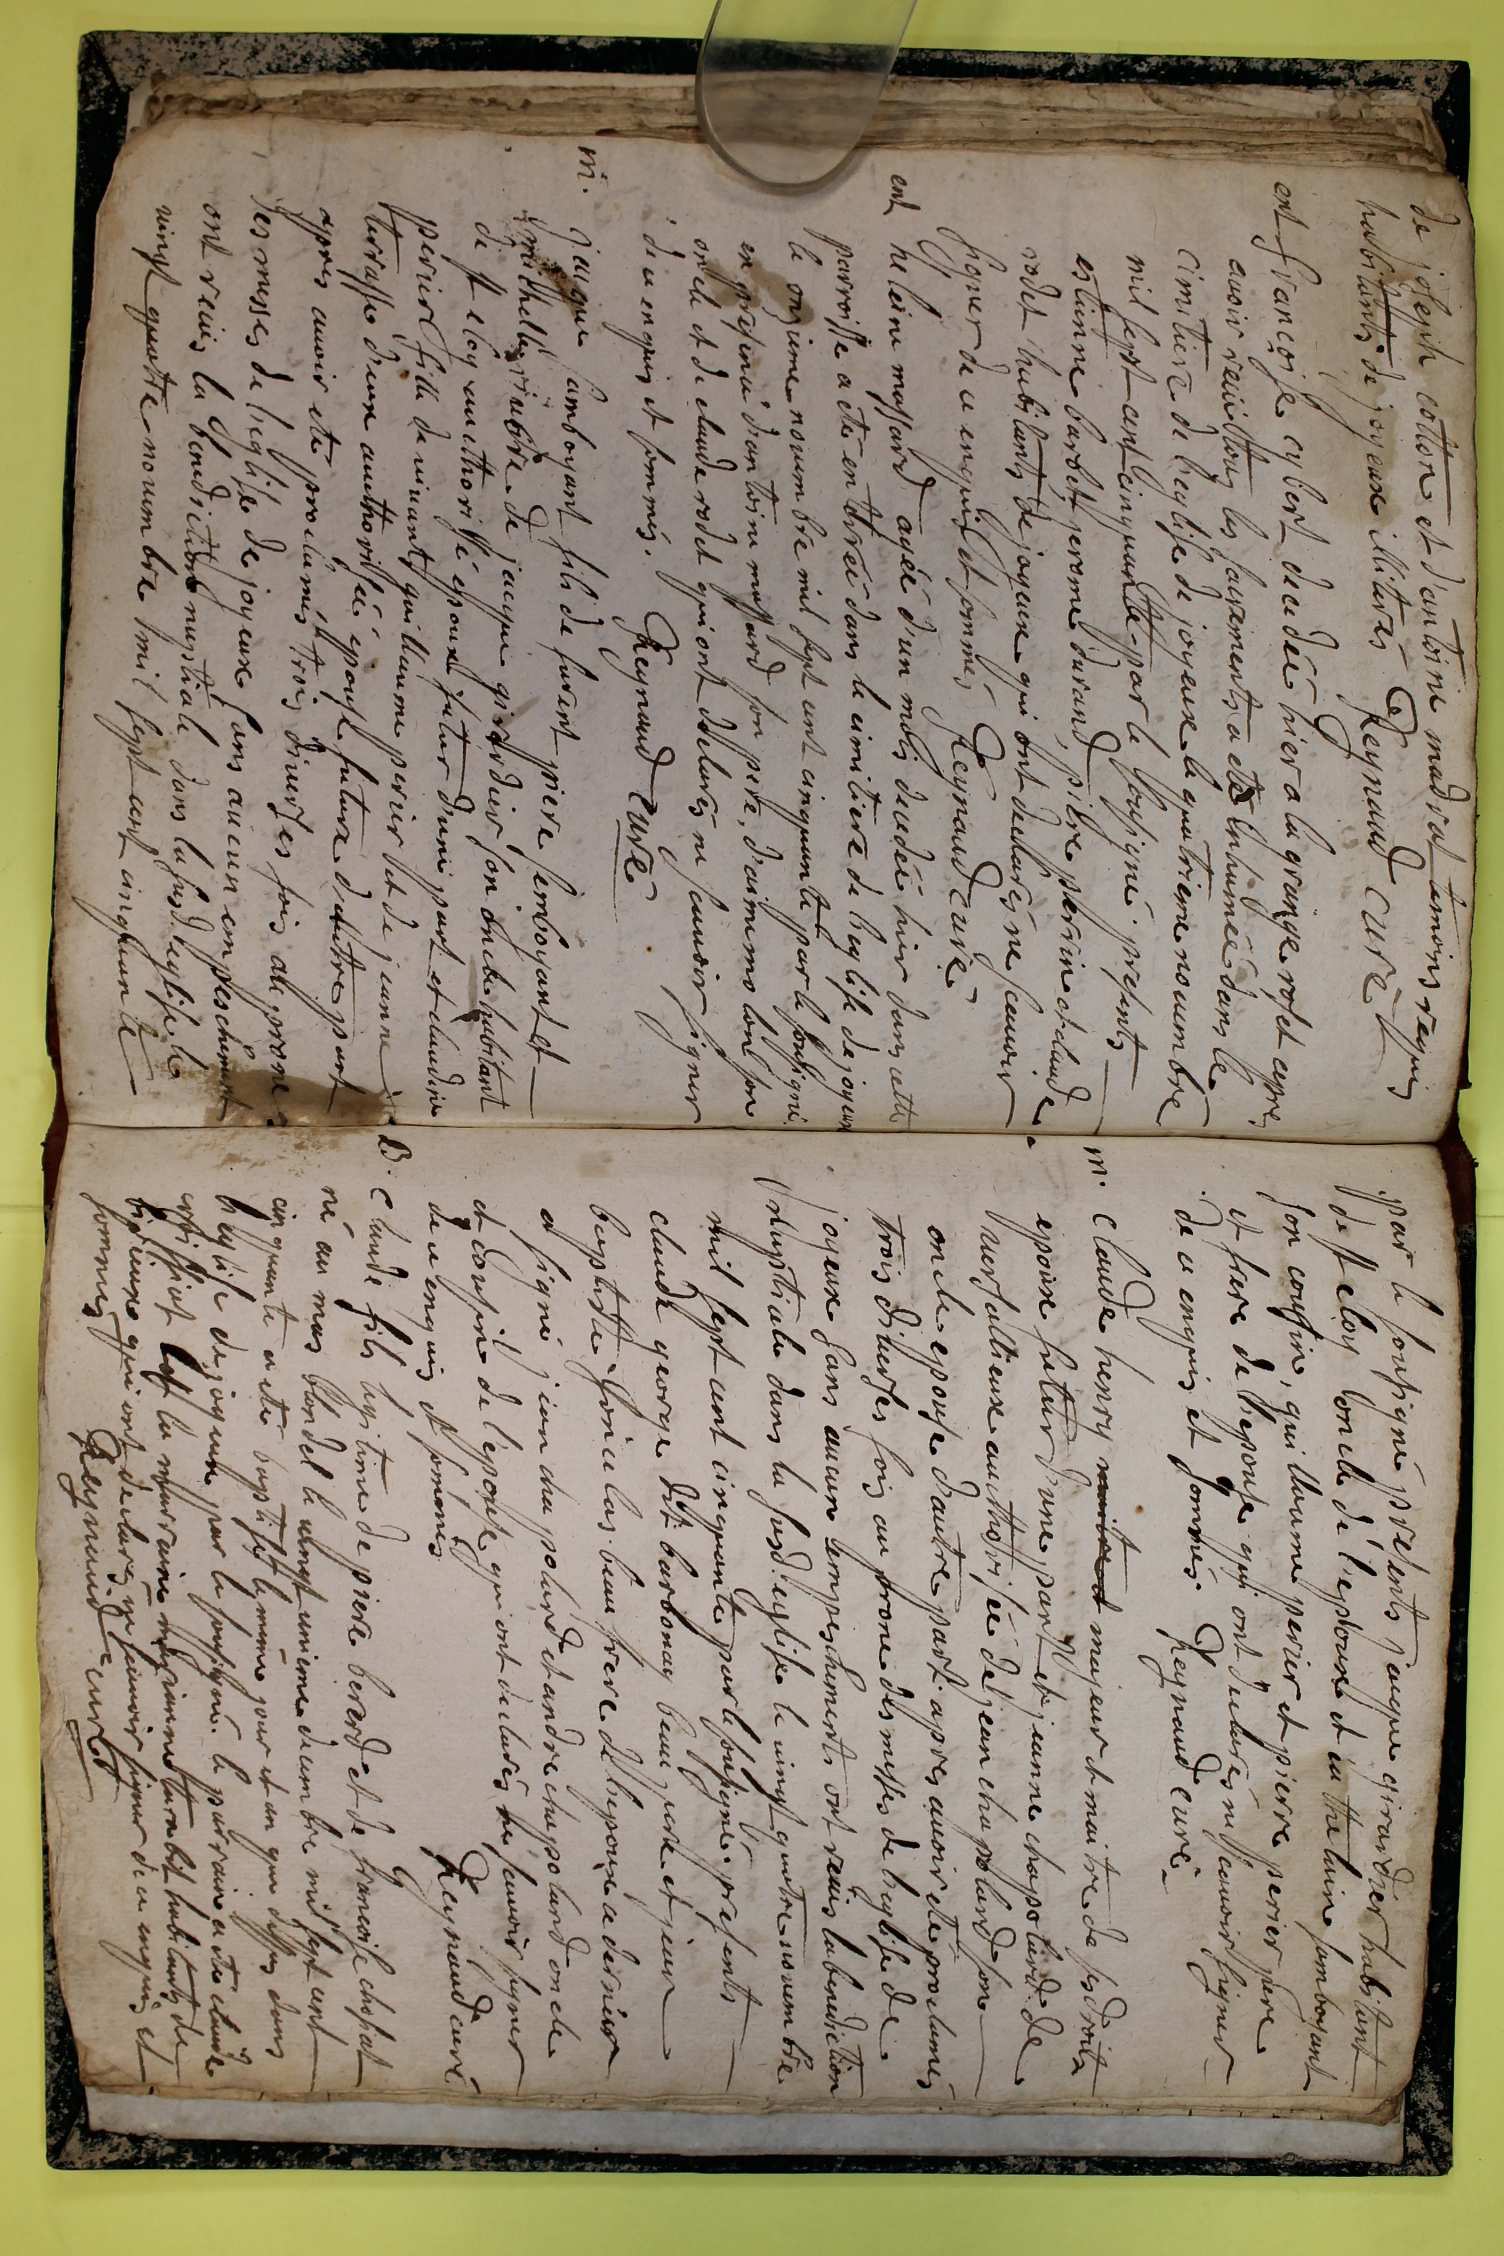 de joseph cotton et d'antoine madrat temoins requis
habitants de joyeux illitarés Reynaud curé
ent françoise cybert decedée hier a la grange roset apres
avoir reçu tous les sacrements a eté inhumée dans le
cimitiere de l'eglise de joyeux le quatrieme nouembre
mil sept cent cinquante par le soussigné presents
estienne barbet jerome durand, piere perrin et claude
rodet habitants de joyeux qui ont declarés ne sçauoir
signer de ce enquis et sommés Reynaud curé
ent heleine massard agée d'un mois decedée hier dans cette
parroisse a eté enterrée dans le cimitiere de l'eglise de joyeux
le onzieme nouembre mil sept cent cinquante par le soussigné
en presence d'antoine massard son pere, d'aimé son
oncle et de claude rodet qui ont declarés ne sçauoir signer
de ce enquis et sommés. Reynaud curé
m. jacque samboyant fils de furent piere semboyant et
michelle riubre de jacque girardier son oncle habitant
de st eloy authorisé epoux futur d'une part et claudine
perier fille de viuant guillaume perier et de jeanne
terrasse d'eux authorisée epouse future d'autre part
appres auoir eté proclamés trois diuerses fois au prone
des messes de l'eglise de joyeux sans aucun empeschement
ont reçus la benediction nuptiale dans la susd. eglise le
vingt quatre nouembre mil sept cent cinquante
par le soussigné presents jacque girardier habitant
de st eloy oncle de l'epoux et antheleine samboyant
son cousin, guillaume perier et pierre perier pere
et frere de l'epouse qui ont declarés ne sçauoir signer
de ce enquis et sommés. Reynaud curé
m. claude henry majeur et maitre de ses droits
epoux futur d'une part et jeanne chapolard de
versallieux authorisée de jean chapolard son
oncle epouse d'autre part appres auoir eté proclamés
trois diuerses fois au prone des messes de l'eglise de
joyeux sans aucun empeschements ont reçus la benediction
nuptiale dans la susd. eglise le vingt quatre nouembre
mil sept cent cinquante par le soussigné. presents
claude george dit barbonay beau pere et jean
baptiste beau frere de l'epoux a dernier
et signé jean chapolard et andre chapolard oncle
et cousin de l'epouse qui ont declarés ne sçauoir signer
de ce enquis et sommés Reynaud curé
B. claude fils legitime de piere berard et de françoise chossat
né au mas blondel le vingt unieme decembre mil sept cent
cinquante a eté baptisé le meme jour et an que dessus dans
l'eglise de joyeux par le soussigné. le parrain a eté claude
chossat et la marraine marianne habitants de
birieux qui ont declarés ne sçauoir signer de ce enquis et
sommés Reynaud curé